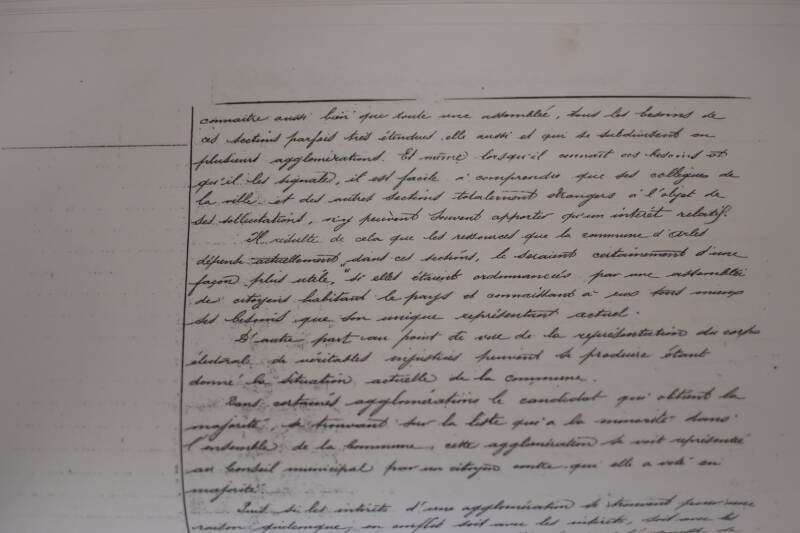 connaitre aussi bien que toute une assemblée, tous les besoins de
ces sections parfois très étendues elle aussi et qui se subdivisent en
plusieurs agglomérations. Et même lorsqu'il connaît ces besoins et
qu'il les signale, il est facile à comprendre que ses collègues de
la ville et des autres sections totalement étrangers à l'objet de
ses sollicitations, n'y peuvent souvent apporter qu'un intérêt relatif.
Il résulte de cela que les ressources que la commune d'Arles
dépense actuellement dans ces sections, le seraient certainement d'une
façon plus utile, si elles étaient ordonnancées par une assemblée
de citoyens habitant le pays et connaissant à eux tous mieux
ses besoins que son unique représentant actuel.
D'autre part au point de vue de la représentation du corps
électoral de véritables injustices peuvent se produire étant
donné la situation actuelle de la commune.
Dans certaines agglomérations le candidat qui obtient la
majorité, se trouvant sur la liste qui a la minorité dans
l'ensemble de la Commune, cette agglomération se voit représentée
au Conseil municipal par un citoyen contre qui elle a voté en
majorité.
si les intérêts d'une agglomération se trouvent pour une
raison quelconque, en conflit soit avec les intérêts, soit avec les